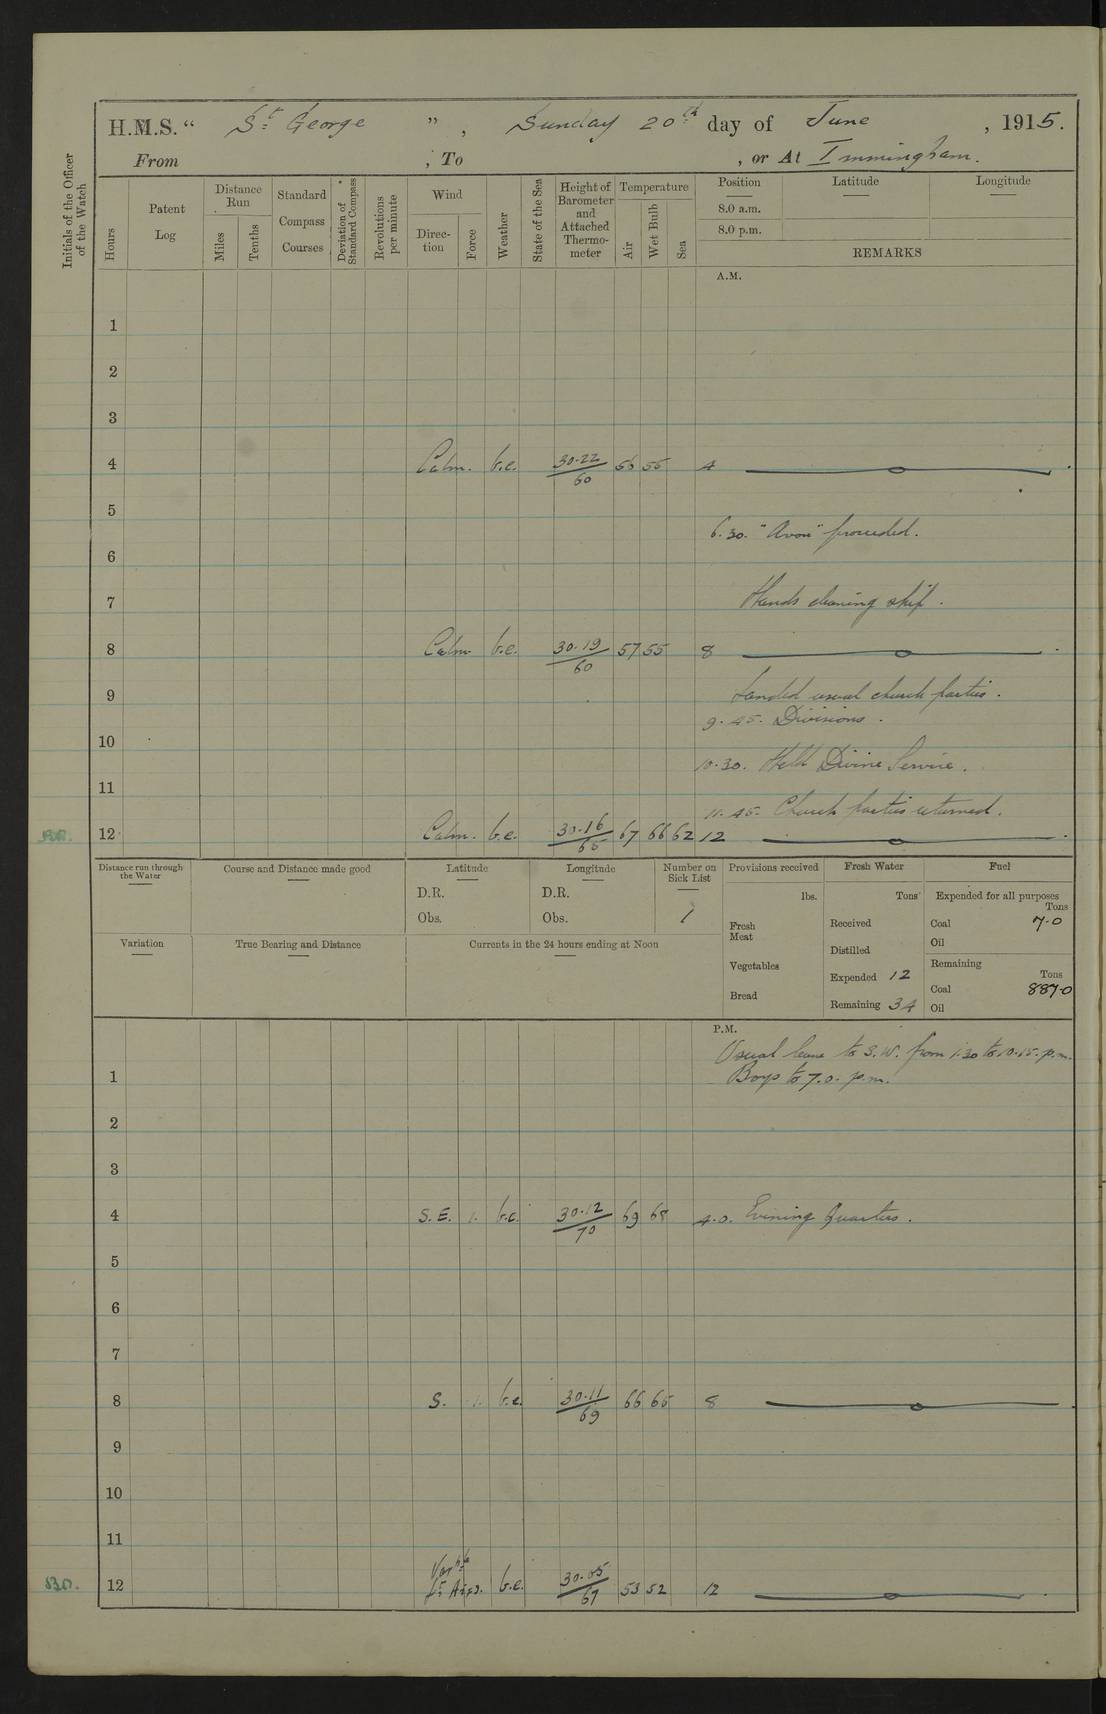 H.M.S. " St George " , Sunday 20th day of June , 1915.
From , To , or At Immingham.
Initials of the Officer of the Watch
Hours
Patent Log
Distance Run
Miles
Tenths
Standard Compass Courses
Deviation of Standard Compass
Revolutions per minute
Wind
Direction
Force
Weather
State of the Sea
Height of Barometer and Attached Thermometer
Temperature
Air
Wet Bulb
Sea
Position Latitude Longitude
8.0 a.m.
8.0 p.m.
REMARKS
A.M.
1
2
3
4 Calm. b.c. 30.22/60 55 4
5
6.30. "Avon" proceeded.
6
7 Hands cleaning ship.
8 Calm b.c. 30.19/60 57 55 8
9 Landed usual church parties.
9.45. Divisions.
10
10.30. Held Divine Service.
11
11.45. Church parties returned.
12 Calm. b.c. 30.16/65 67 66 62 12
Distance run through the Water
Course and Distance made good
Latitude
D.R.
Obs.
Longitude
D.R.
Obs.
Number on Sick List
1
Provisions received
lbs.
Fresh Meat
Vegetables
Bread
Fresh Water
Tons
Received
Distilled
Expended 12
Remaining 34
Fuel
Expended for all purposes
Tons
Coal 7.0
Oil
Remaining
Tons
Coal 887.0
Oil
Variation
True Bearing and Distance
Currents in the 24 hours ending at Noon
P.M.
Usual leave to S.W. from 1.30 to 10.15. p.m.
Boys to 7.0. p.m.
1
2
3
4 S.E. 1. b.c. 30.12/70 69 68 4.0. Evening Quarters.
5
6
7
8 S. 1. b.c. 30.11/69 66 65 8
9
10
11
12 Varble Lt Airs. b.c. 30.05/67 53 52 12